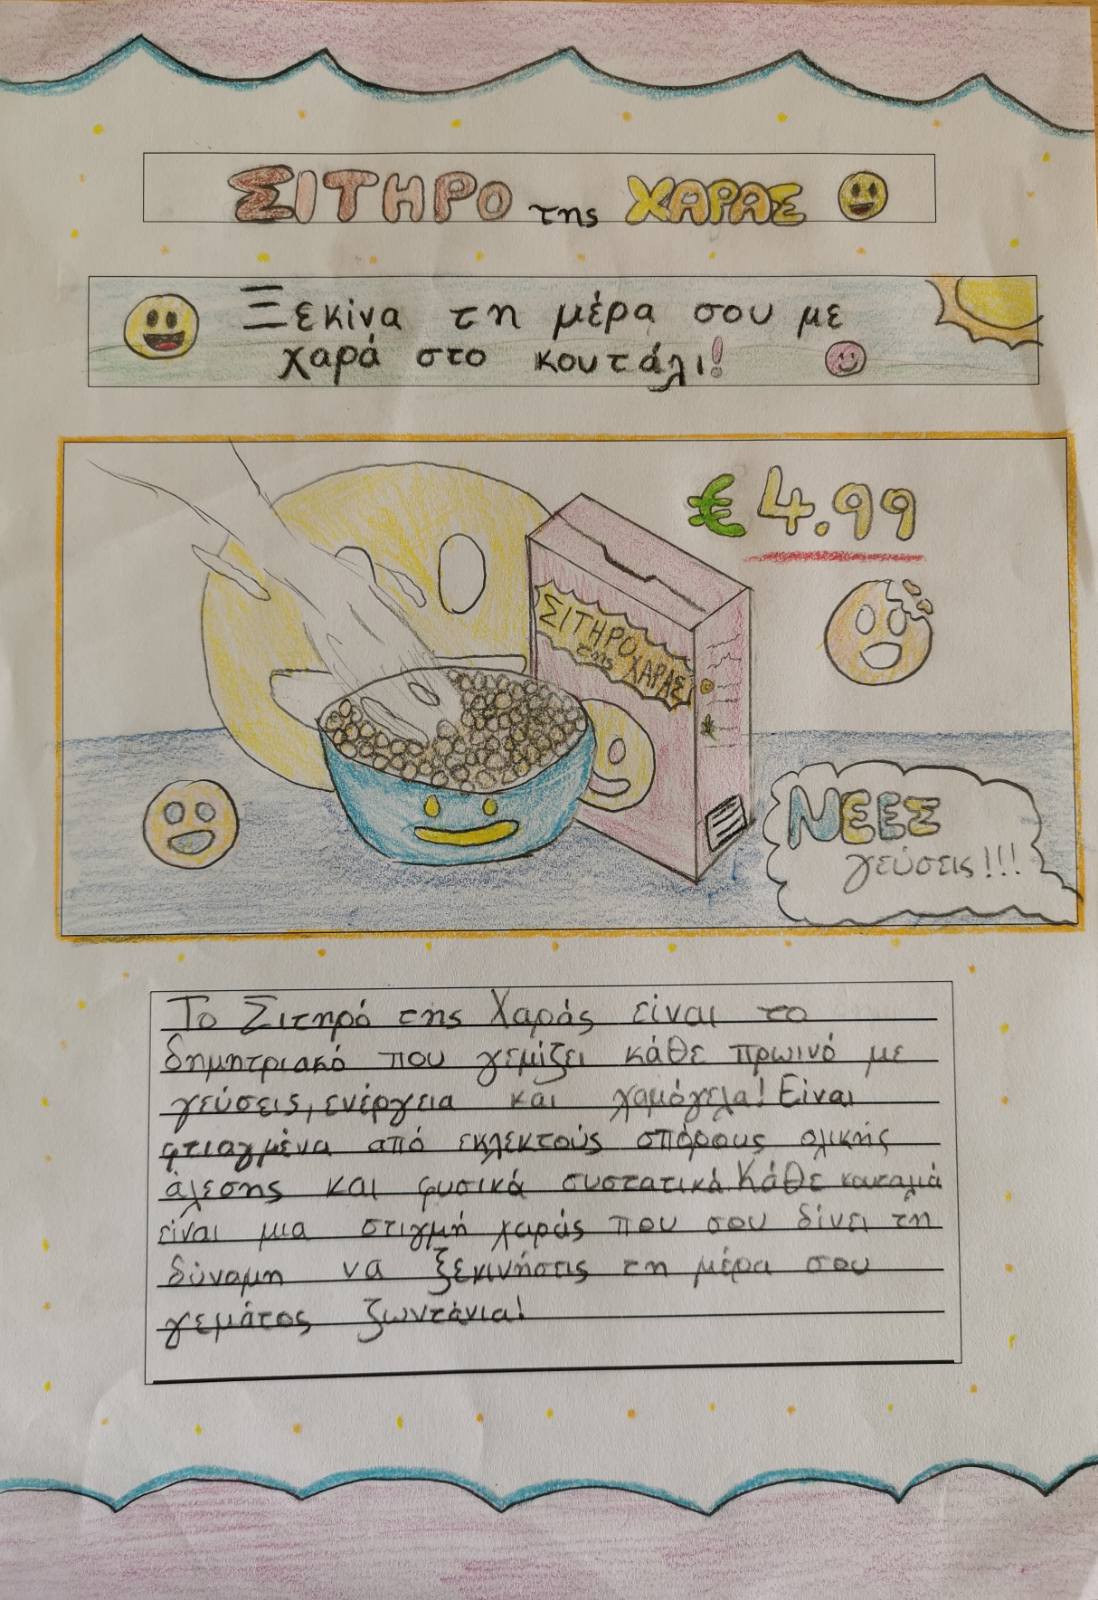 ΣΙΤΗΡΟ της ΧΑΡΑΣ
Ξεκίνα τη μέρα σου με
χαρά στο κουτάλι!
€4.99
ΣΙΤΗΡΟ
της ΧΑΡΑΣ
ΝΕΕΣ
γεύσεις!!!
Το Σιτηρό της Χαράς είναι το
δημητριακό που γεμίζει κάθε πρωινό με
γεύσεις, ενέργεια και χαμόγελα! Είναι
φτιαγμένα από εκλεκτούς σπόρους ολικής
άλεσης και φυσικά συστατικά. Κάθε κουταλιά
είναι μια στιγμή χαράς που σου δίνει τη
δύναμη να ξεκινήσεις τη μέρα σου
γεμάτος ζωντάνια!